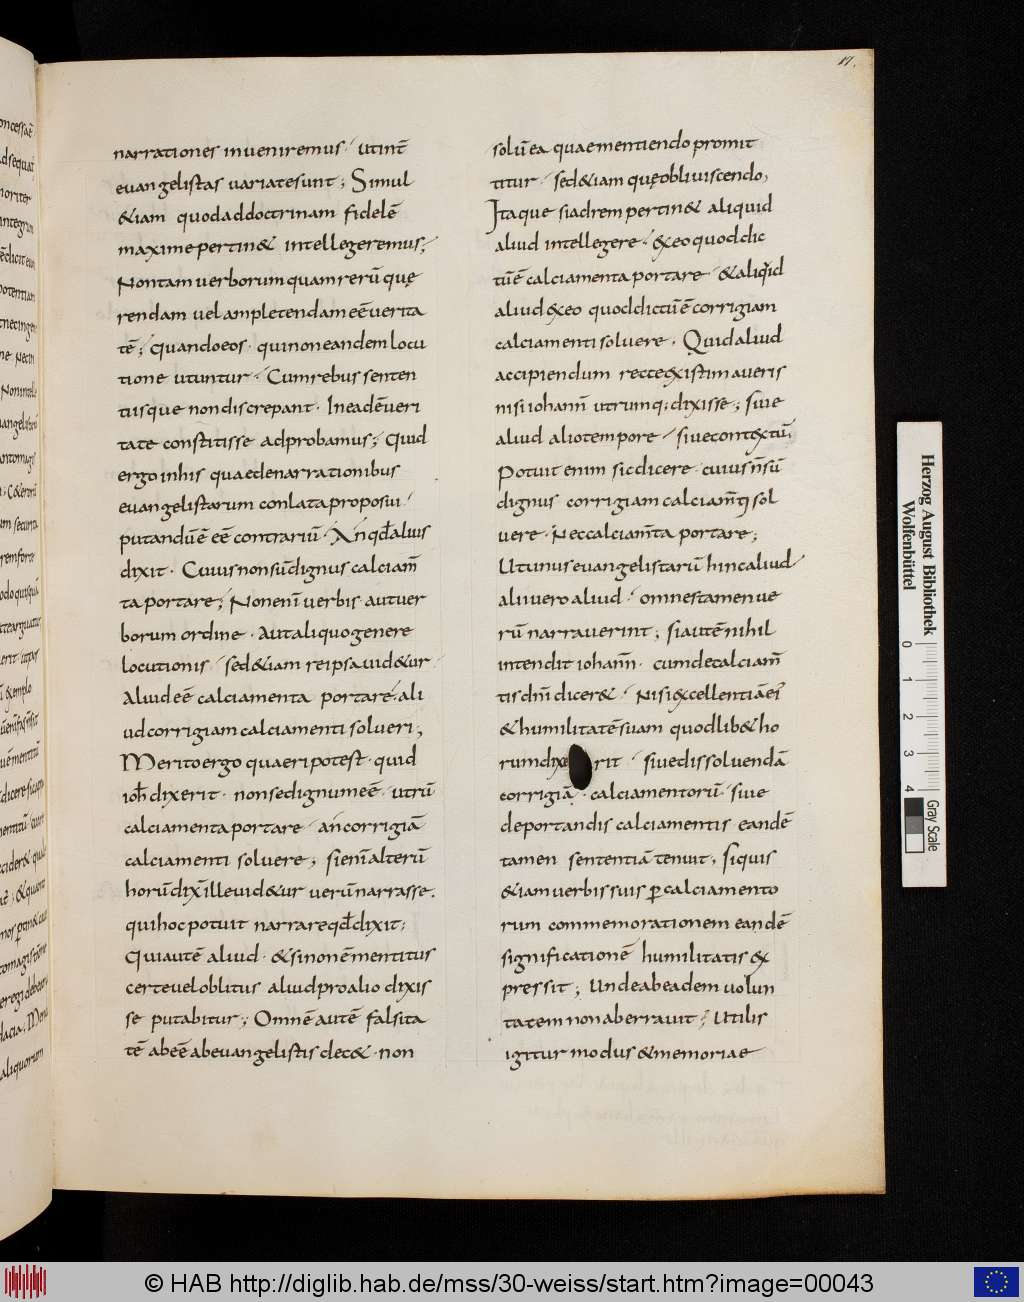 17.
narrationes inueniremus· ut int̄
euangelistas uariatesunt; Simul
&iam quod ad doctrinam fidelē
maxime pertin& intellegeremus;
Non tam uerborum quam rerū quę
rendam uel ampletendam eē uerita
tē; quando eos· qui non eandem locu
tione utuntur· Cum rebus senten
tiisque non discrepant· In eadē ueri
tate constitisse adprobamus; Quid
ergo in his quae de narrationibus
euangelistarum conlata proposui·
putandū ē eē contrariū· An qđ alius
dixit· Cuius non sū dignus calciam̄
ta portare; Non enī uerbis aut uer
borum ordine· Aut aliquo genere
locutionis· sed&iam re ipsa uid&ur·
Aliud eē calciamenta portare· ali
ud corrigiam calciamenti solueri;
Merito ergo quaeri potest· quid
ioħ dixerit· non se dignum eē· utrū
calciamenta portare· an corrigiā
calciamenti soluere; si enī alterū
horū dix̄ ille uid&ur uerū narrasse·
qui hoc potuit narrare qđ dixit;
Qui autē aliud· & si non ē mentitus
certe uel oblitus aliud pro alio dixis
se putabitur; Omnē autē falsita
tē abeē ab euangelistis dec&· non
solū ea quae mentiendo promit
titur· sed&iam quę obliuiscendo;
Itaque si ad rem pertin& aliquid
aliud intellegere· & ex eo quod dic
tū ē calciamenta portare· & aliqid
aliud & ex eo quod dictū ē corrigiam
calciamenti soluere· Quid aliud
accipiendum recte existimaueris
nisi iohann̄ utrumq; dixisse; siue
aliud alio tempore· siue contextū;
Potuit enim sic dicere· cuius n̄ sū
dignus corrigiam calciam̄ti sol
uere· Nec calciam̄ta portare;
Ut unus euangelistarū hinc aliud·
alii uero aliud· omnes tamen ue
rū narrauerint; si autē nihil
intendit iohann̄· cum de calciam̄
tis dn̄i dicer&· Nisi excellentiā ei'
& humilitatē suam quodlib& ho
rum dixerit· siue dissoluendā
corrigiā· calciamentorū· siue
deportandis calciamentis eandē
tamen sententiā tenuit· siquis
&iam uerbis suis ꝑ calciamento
rum commemorationem eandē
significationē humilitatis ex
pressit; Unde ab eadem uolun
tatem non aberrauit; Utilis
igitur modus & memoriae
Herzog August Bibliothek
Wolfenbüttel
0 1 2 3 4
Gray Scale
© HAB http://diglib.hab.de/mss/30-weiss/start.htm?image=00043